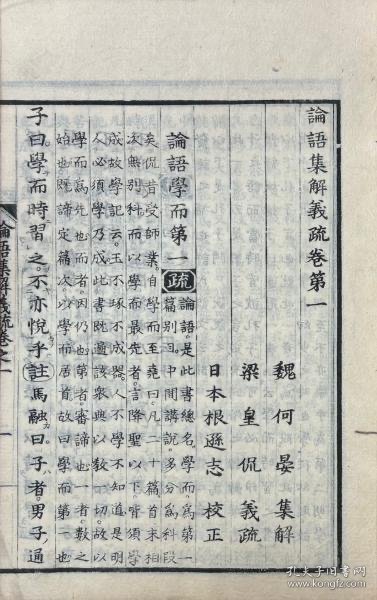 論語集解義疏卷第一
魏何晏集解
梁皇侃義疏
日本根遜志校正
論語學而第一 疏 論語是此書總名學而爲第一
篇別目中間講說多分爲科段
矣侃昔受師業自學而至堯曰凡二十篇首末相
次無別科而以學而最先者言降聖以下皆須學
成故學記云玉不琢不成器人不學不知道是明
人必須學乃成此書既遍該衆典以敎一切故以
學而爲先也而者因仍也第者審諦也一者數之
始也既諦定篇次以學而居首故曰學而第一也
子曰學而時習之不亦悅乎 註 馬融曰子者男子通
論語集解義疏卷之一
孔夫子旧书网